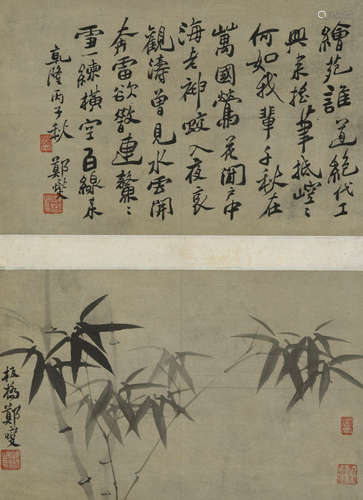 繪苑誰道絕代工
興來搖筆抵崆崆
何如我輩千秋在
萬國鶯花開戶中
海老神
入夜哀
觀濤曾見水雲開
奔雷欲
連鰲
雪一練橫空百線來
乾隆丙子秋
鄭燮
板橋鄭燮